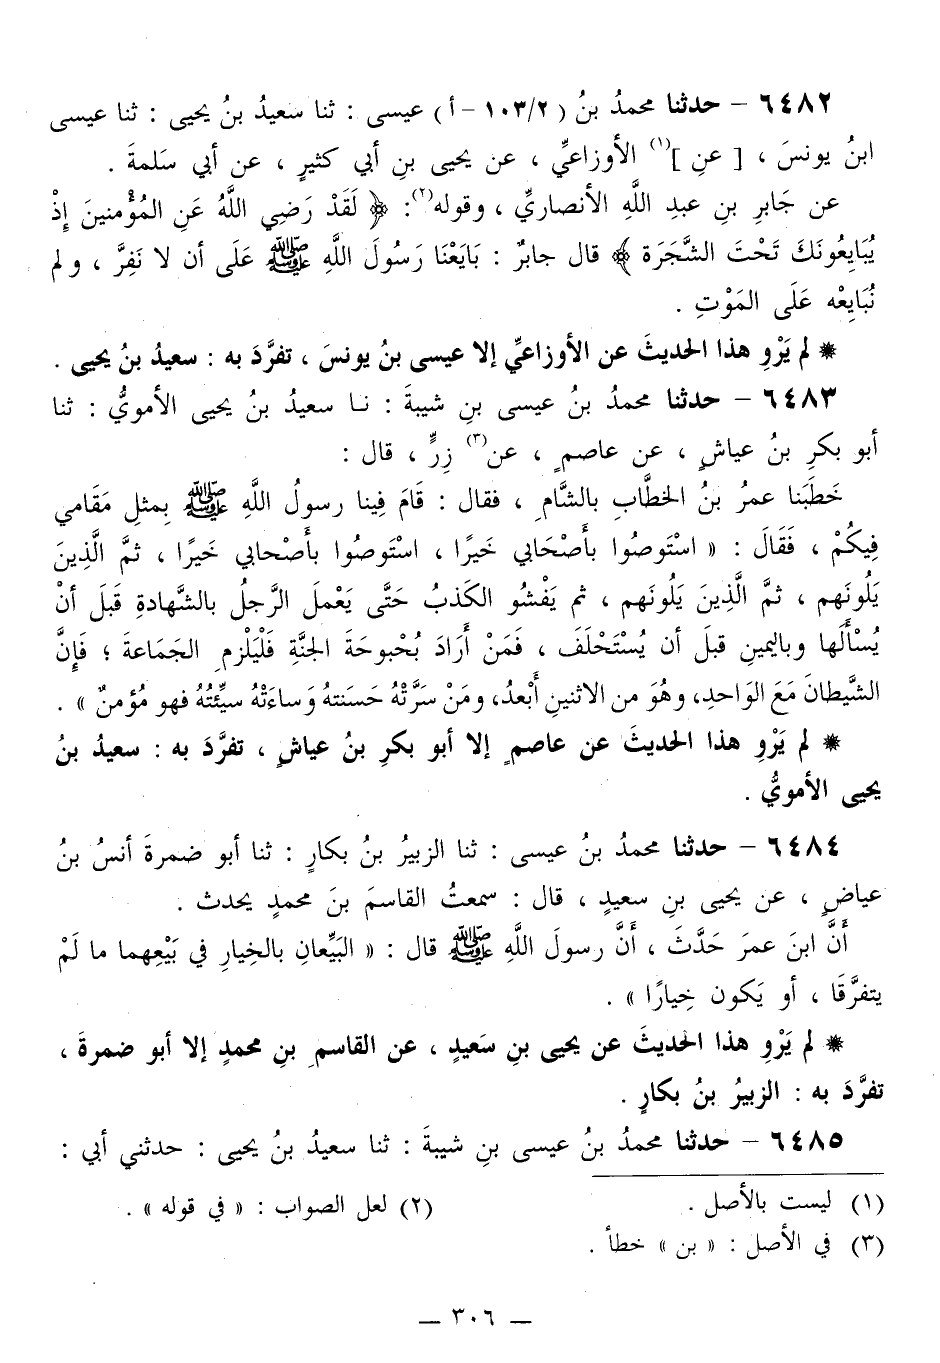 ٦٤٨٢ – حدثنا محمدُ بنُ (١٠٣/٢ – أ) عيسى : ثنا سعيدُ بنُ يحيى : ثنا عيسى
ابنُ يونسَ ، [ عنِ ](١) الأوزاعيِّ ، عن يحيى بنِ أبي كثيرٍ ، عن أبي سَلمةَ .
عن جَابرِ بنِ عبدِ اللَّهِ الأنصاريِّ ، وقوله(٢): ﴿ لَقَدْ رَضِي اللَّهُ عَنِ المُؤْمنينَ إِذْ
يُبَايِعُونَكَ تَحْتَ الشَّجَرَة ﴾ قال جابرٌ : بَايَعْنَا رَسُولَ اللَّهِ ﷺ عَلَى أن لا نَفِرَّ ، ولم
نُبَايِعْه عَلَى المَوْتِ .
* لم يَرْوِ هذا الحديثَ عن الأوزاعيِّ إلا عيسى بنُ يونسَ ، تفرَّدَ به : سعيدُ بنُ يحيى .
٦٤٨٣ – حدثنا محمدُ بنُ عيسى بنِ شيبةَ : نـا سعيدُ بنُ يحيى الأمويُّ : ثنا
أبو بكرِ بنُ عياشٍ ، عن عاصمٍ ، عن(٣) زِرٍّ ، قال :
خَطَبَنا عمرُ بنُ الخطَّابِ بالشَّامِ ، فقال : قَامَ فِينا رسولُ اللَّهِ ﷺ بِمثلِ مَقَامي
فِيكُمْ ، فَقَالَ : « اسْتَوصُوا بأصْحَابي خَيرًا ، اسْتَوصُوا بأصْحابي خَيرًا ، ثمَّ الَّذِينَ
يَلُونَهم ، ثمَّ الَّذِينَ يَلُونَهم ، ثم يَفْشُو الكَذبُ حَتَّى يَعْملَ الرَّجلُ بالشَّهادةِ قبلَ أنْ
يُسْألَها وباليمينِ قبلَ أن يُسْتَحْلَفَ ، فَمَنْ أَرَادَ بُحْبوحَةَ الجنَّةِ فَلْيَلْزمِ الجَمَاعةَ ؛ فَإِنَّ
الشَّيطانَ مَعَ الوَاحدِ، وهُوَ من الاثنينِ أَبْعدُ، ومَنْ سَرَّتْهُ حَسَنتهُ وَساءَتْهُ سيِّئتُهُ فهو مُؤمنٌ » .
* لم يَرْوِ هذا الحديثَ عن عاصمٍ إلا أبو بكرِ بنُ عياشٍ ، تفرَّدَ به : سعيدُ بنُ
يحيى الأمويُّ .
٦٤٨٤ – حدثنا محمدُ بنُ عيسى : ثنا الزبيرُ بنُ بكارٍ : ثنا أبو ضمرةَ أنسُ بنُ
عياضٍ ، عن يحيى بنِ سعيدٍ ، قال : سمعتُ القاسمَ بنَ محمدٍ يحدث .
أنَّ ابنَ عمرَ حَدَّثَ ، أنَّ رسولَ اللَّهِ ﷺ قال : « البَيِّعانِ بالخِيارِ في بَيْعِهما ما لَمْ
يتفرَّقَا ، أو يَكون خِيارًا » .
* لم يَرْوِ هذا الحديثَ عن يحيى بنِ سَعيدٍ ، عن القاسمِ بنِ محمدٍ إلا أبو ضمرةَ ،
تفرَّدَ به : الزبيرُ بنُ بكارٍ .
٦٤٨٥ – حدثنا محمدُ بنُ عيسى بنِ شيبةَ : ثنا سعيدُ بنُ يحيى : حدثني أبي :
(١) ليست بالأصل . (٢) لعل الصواب : « في قوله » .
(٣) في الأصل : « بن » خطأ .
— ٣٠٦ —